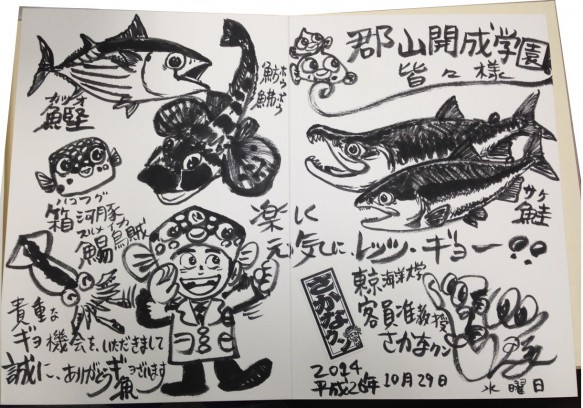 郡山開成学園
皆々様
カツオ
鰹
魴ホウ
鮄ボウ
ハコフグ
箱河豚
スルメイカ
鯣烏賊
サケ
鮭
楽しく
元気に、レッツ・ギョー!!
貴重な
ギョ機会を、いただきまして
誠に、ありがとうギョざいます
魚
さかなクン
東京海洋大学
客員准教授
さかなクン
2014
平成26年10月29日
水曜日